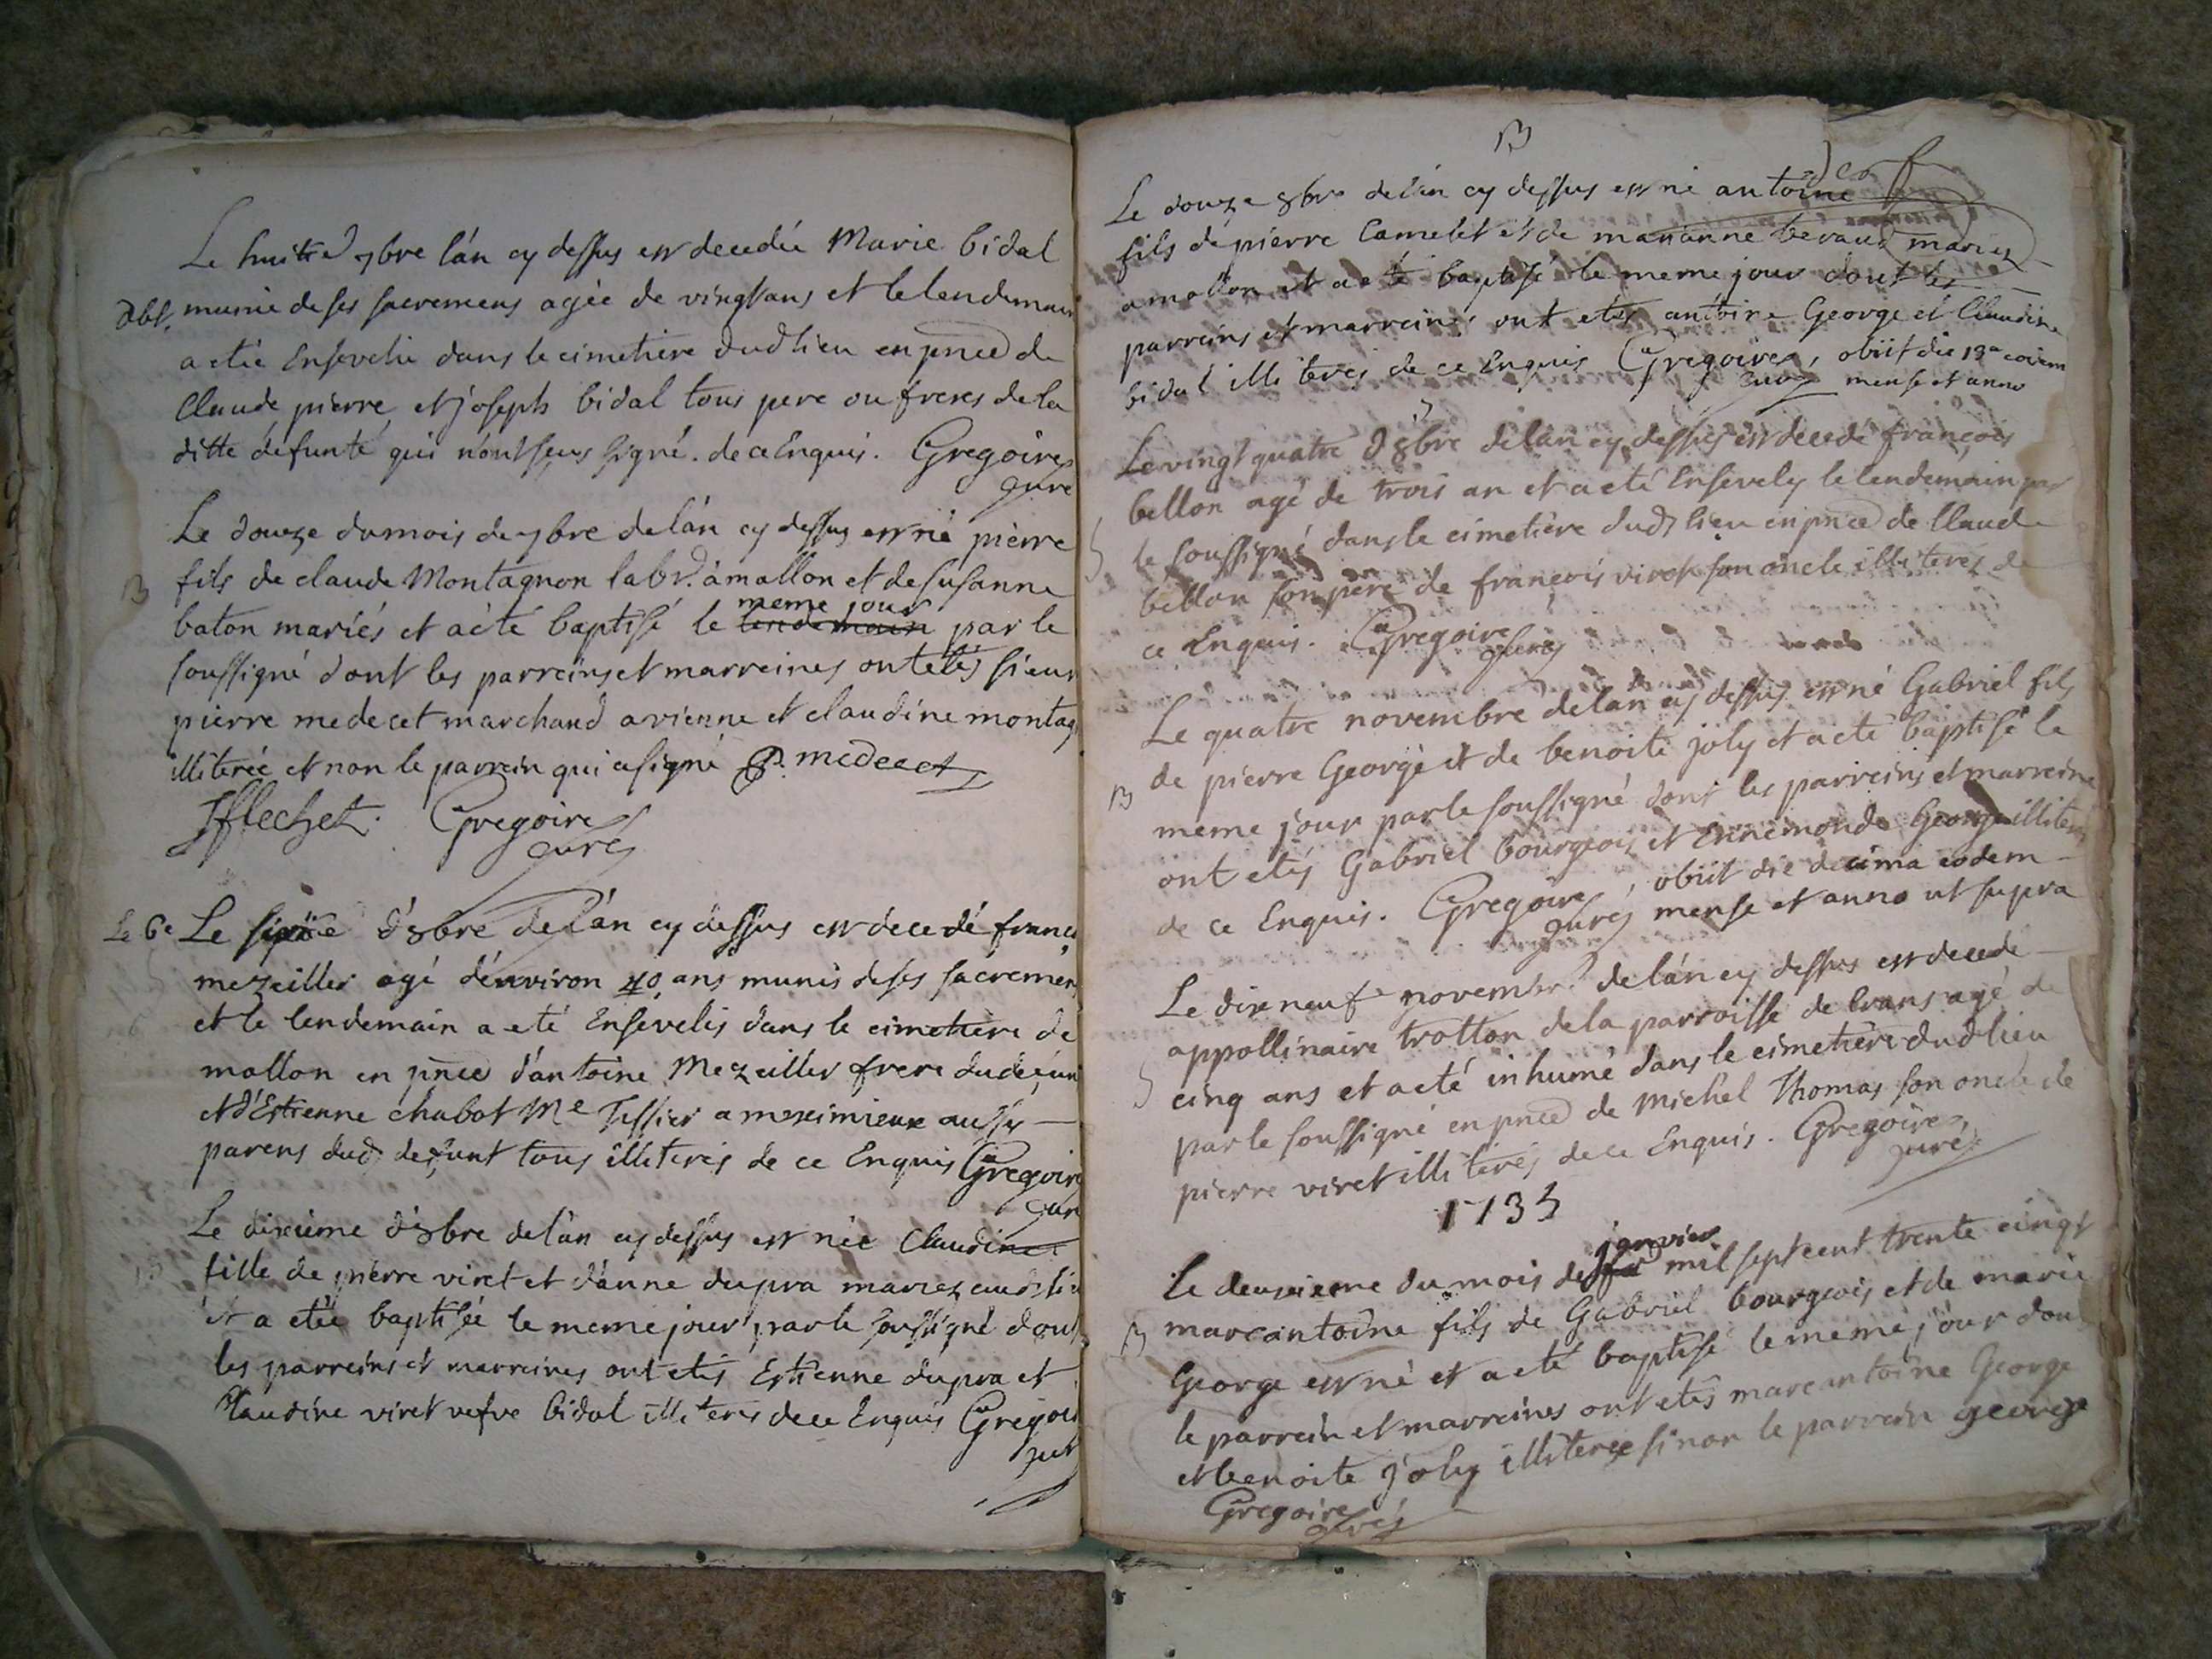 Le huitie 7bre l'án cy dessus est decedée Marie bidal
obt. munie de ses sacremens agée de vingt ans et le lendemain
a etée Ensevelie dans le cimetiere dud lieu en pnce de
Claude pierre et joseph bidal tous pere ou freres de la
ditte defunte qui n'ont sçus signé. de ce Enquis. Gregoire
curé
Le douze du mois de 7bre de l'án cy dessus est né pierre
B fils de claude Montagnon labr. a mallon et de susanne
meme jour
baton mariés et a èté baptisé le lendemain par le
soussigné dont les parreins et marreines ont etés sieur
pierre medecet marchand a vienne et claudine montag
illiterée et non le parrein qui a signé P. medecet
Jfflechet. Gregoire
curé
Le 6e Le sixie d'8bre de l'án cy dessus est decedé franc
mezeiller agé d'environ 40 ans munis de ses sacremen
et le lendemain a eté Ensevelis dans le cimetiere de
mallon en pnce d'antoine Mezeiller frere du defun
et d'Estienne chabot Me Tessier a meximieux aussy
parens dud defunt tous illiterés de ce Enquis Gregoire
cur
Le dixieme d'8bre de l'án cy dessus est née Claudine
fille de pierre viret et d'anne dupra mariez aud lieu
et a etée baptisée le meme jour par le soussigné dont
les parreins et marreines ont etés Estienne dupra et
Claudine viret vefve bidal illiterés de ce Enquis Gregoi
cur
B
Le douze 8bre de l'án cy dessus est né antoine
fils de pierre Camelet et de marianne beraud mariez
a mollon et a eté baptisé le meme jour dont les
parreins et marreines ont etés antoine George et Claudine
bidal illiterés de ce Enquis Gregoire, obiit die 13a eodem
curé mense et anno
Le vingt quatre d'8bre de l'án cy dessus est decedé françois
bellon agé de trois an et a eté Ensevely le lendemain par
S le soussigné dans le cimetière dud lieu en pnce de Claude
bellon son père de françois viret son oncle illiterez de
ce Enquis. Gregoire
curé
Le quatre novembre de lan cy dessus est né Gabriel fils
de pierre George et de benoite joly et a eté baptisé le
B meme jour par le soussigné dont les parreins et marreine
ont etés Gabriel bourgeois et Ennemonde George illiteré
de ce Enquis. Gregoire, obiit die decima eodem
curé mense et anno ut supra
Le dixneufe novembre de l'án cy dessus est decedé
appollinaire trotton de la parroisse de agé de
S cinq ans et a eté inhumé dans le cimetière dud lieu
par le soussigné en pnce de michel Thomas son oncle de
pierre viret illiterés de ce Enquis. Gregoire,
curé
1735
janvier
Le deuxieme du mois de mil sept cent trente cinq
B marcantoine fils de Gabriel bourgeois et de marie
George est né et a eté baptisé le meme jour dont
le parrein et marreines ont etés marcantoine George
et benoite joly illiterée sinon le parrein george
Gregoire
curé